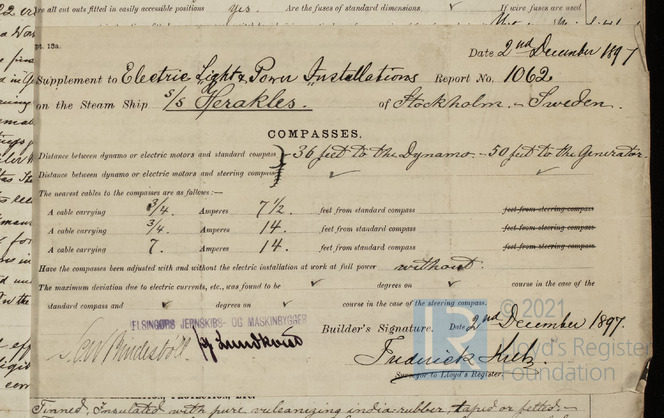 are all cut outs fitted in easily accessible positions yes. Are the fuses of standard dimensions. ✓ If wire fuses are used
pt. 13a.
Date 2nd December 1897
Supplement to Electric Light & Power Installations Report No. 1062
on the Steam Ship S/S Herakles. of Stockholm. - Sweden.
COMPASSES.
Distance between dynamo or electric motors and standard compass } 36 feet to the Dynamo. - 50 feet to the Generator.
Distance between dynamo or electric motors and steering compass ✓ ✓
The nearest cables to the compasses are as follows:—
A cable carrying 3/4. Amperes 7 1/2. feet from standard compass feet from steering compass
A cable carrying 3/4. Amperes 14. feet from standard compass feet from steering compass
A cable carrying 7. Amperes 14. feet from standard compass feet from steering compass
Have the compasses been adjusted with and without the electric installation at work at full power without.
The maximum deviation due to electric currents, etc., was found to be ✓ degrees on ✓ course in the case of the
standard compass and ✓ degrees on ✓ course in the case of the steering compass.
HELSINGÖRS JERNSKIBS- OG MASKINBYGGERI
Builder's Signature. Date 2nd December 1897.
Lundkvist
Frederick
Surveyor to Lloyd's Register.
© 2021
LR
Lloyd's Register
Foundation
Tinned, Insulated with pure vulcanizing india-rubber, taped or felted:-